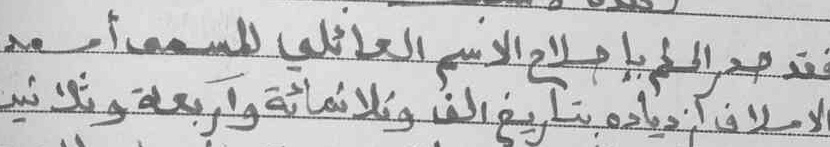 فقد صدر الحكم بإصلاح الاسم العائلي للمسمى أسعد
ازدياده بتاريخ الف وثلاثمائة وأربعة وثلاثين